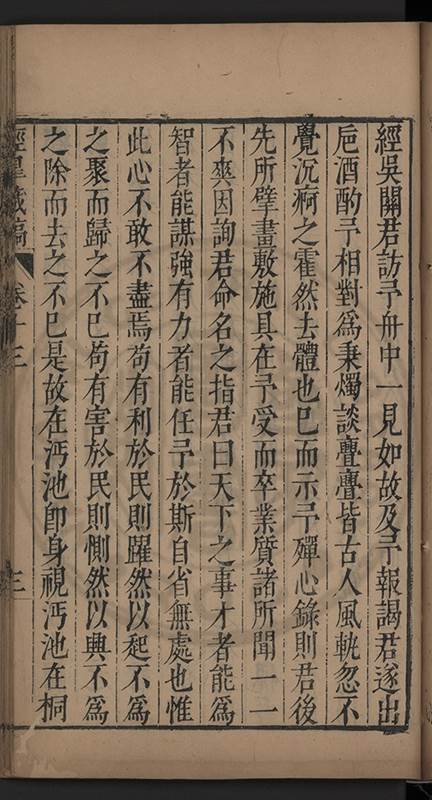 經吳關君訪予舟中一見如故及予報謁君遂出
巵酒酌予相對爲秉燭談亹亹皆古人風軌忽不
覺沉痾之霍然去體也已而示予殫心錄則君後
先所擘畫敷施具在予受而卒業質諸所聞一一
不爽因詢君命名之指君曰天下之事才者能爲
智者能謀強有力者能任予於斯自省無處也惟
此心不敢不盡焉苟有利於民則躍然以起不爲
之聚而歸之不已苟有害於民則惻然以興不爲
之除而去之不已是故在沔池卽身視沔池在桐
藏稿
卷十三
三